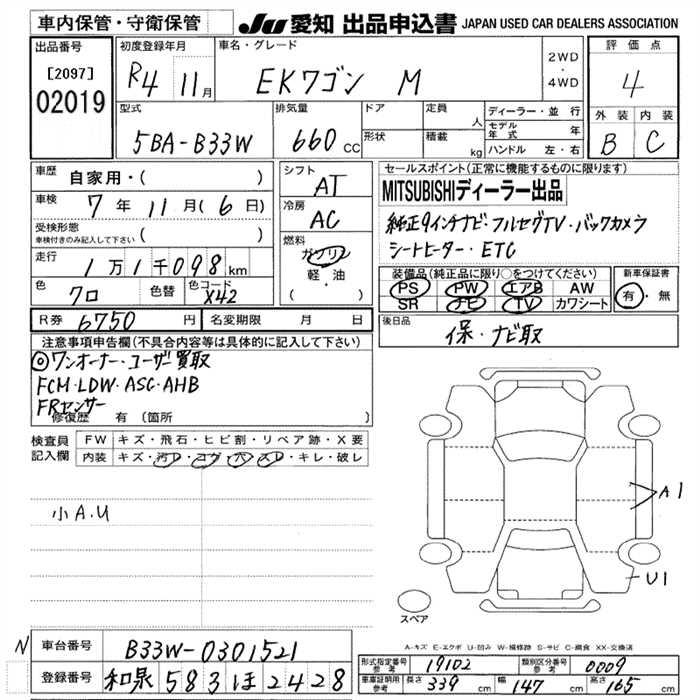 車内保管・守衛保管
JU 愛知 出品申込書 JAPAN USED CAR DEALERS ASSOCIATION
出品番号
[2097]
02019
初度登録年月
R4 11月
車名・グレード
EKワゴン M
2WD
・
4WD
評価点
4
外装 内装
B C
型式
5BA-B33W
排気量
660 cc
ドア
形状
定員 人
積載 kg
ディーラー・並行
モデル年式 年
ハンドル 左・右
車歴 自家用・( )
車検 7年11月(6日)
受検形態
車検付きのみ記入して下さい ( )
走行 1万1千098km
色 クロ 色替 色コード X42
シフト
AT
冷房
AC
燃料
ガソリン
軽・油
( )
セールスポイント(正常に機能するものに限ります)
MITSUBISHIディーラー出品
純正9インチナビ・フルセグTV・バックカメラ
シートヒーター・ETC
装備品(純正品に限り○をつけてください)
PS PW エアB AW
SR ナビ TV カワシート
新車保証書
有・無
R券 6750円 名変期限 月 日
後日品
保・ナビ取
注意事項申告欄(不具合内容等は具体的に記入して下さい)
◎ワンオーナー・ユーザー買取
FCM・LDW・ASC・AHB
FRセンサー
修復歴 有(箇所 )
検査員記入欄
FW キズ・飛石・ヒビ割・リペア跡・X要
内装 キズ・汚レ・コゲ・穴・スレ・キレ・破レ
小A.U
A1
U1
スペア
A-キズ E-エクボ U-凹み W-補修跡 S-サビ C-腐食 XX-交換済
N
車台番号 B33W-0301521
登録番号 和泉 583 ほ 2428
形式指定番号 参考 19102 類別区分番号 参考 0009
車庫証明用 参考 長さ 339 cm 幅 147 cm 高さ 165 cm